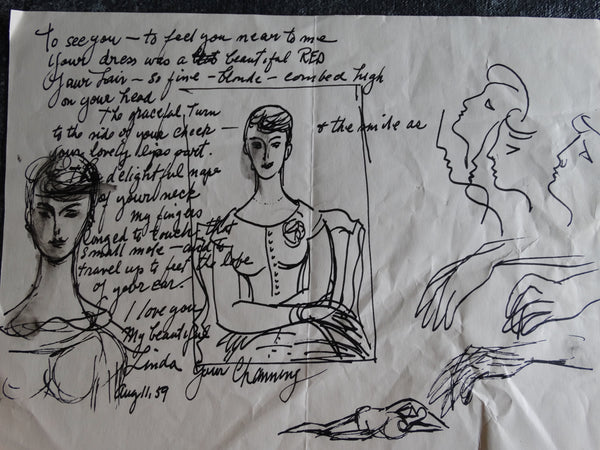 To see you — to feel you near to me
Your dress was a beautiful RED
Your hair — so fine — blonde — combed high
on your head
the graceful turn
to the side of your cheek — & the smile as
your lovely lips part.
the delightful nape
of your neck
my fingers
longed to touch that
small mole — and to
travel up to feel the lobe
of your ear.
I love you
My beautiful
Linda Your Channing
Aug 11, 59